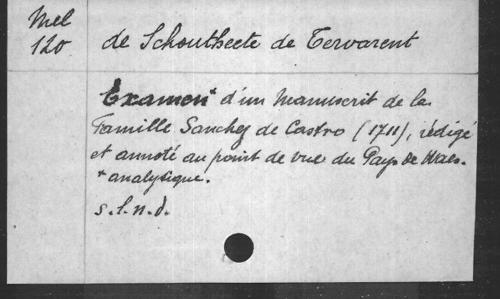 Mel
120
de Schoutheete de Tervarent
Examen* d'un Manuscrit de la
Famille Sanchez de Castro (1711), rédigé
et annoté au point de vue du Pays de Waes.
* analytique.
s.l.n.d.